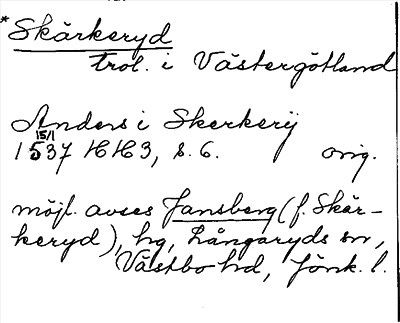 *Skärkeryd
trol. i Västergötland
Anders i Skerkerij
15/1
1537 HH3, s. 6. orig.
möjl. avses Jansberg (f. Skär-
keryd), hg, Långaryds sn,
Västbo hd, Jönk. l.